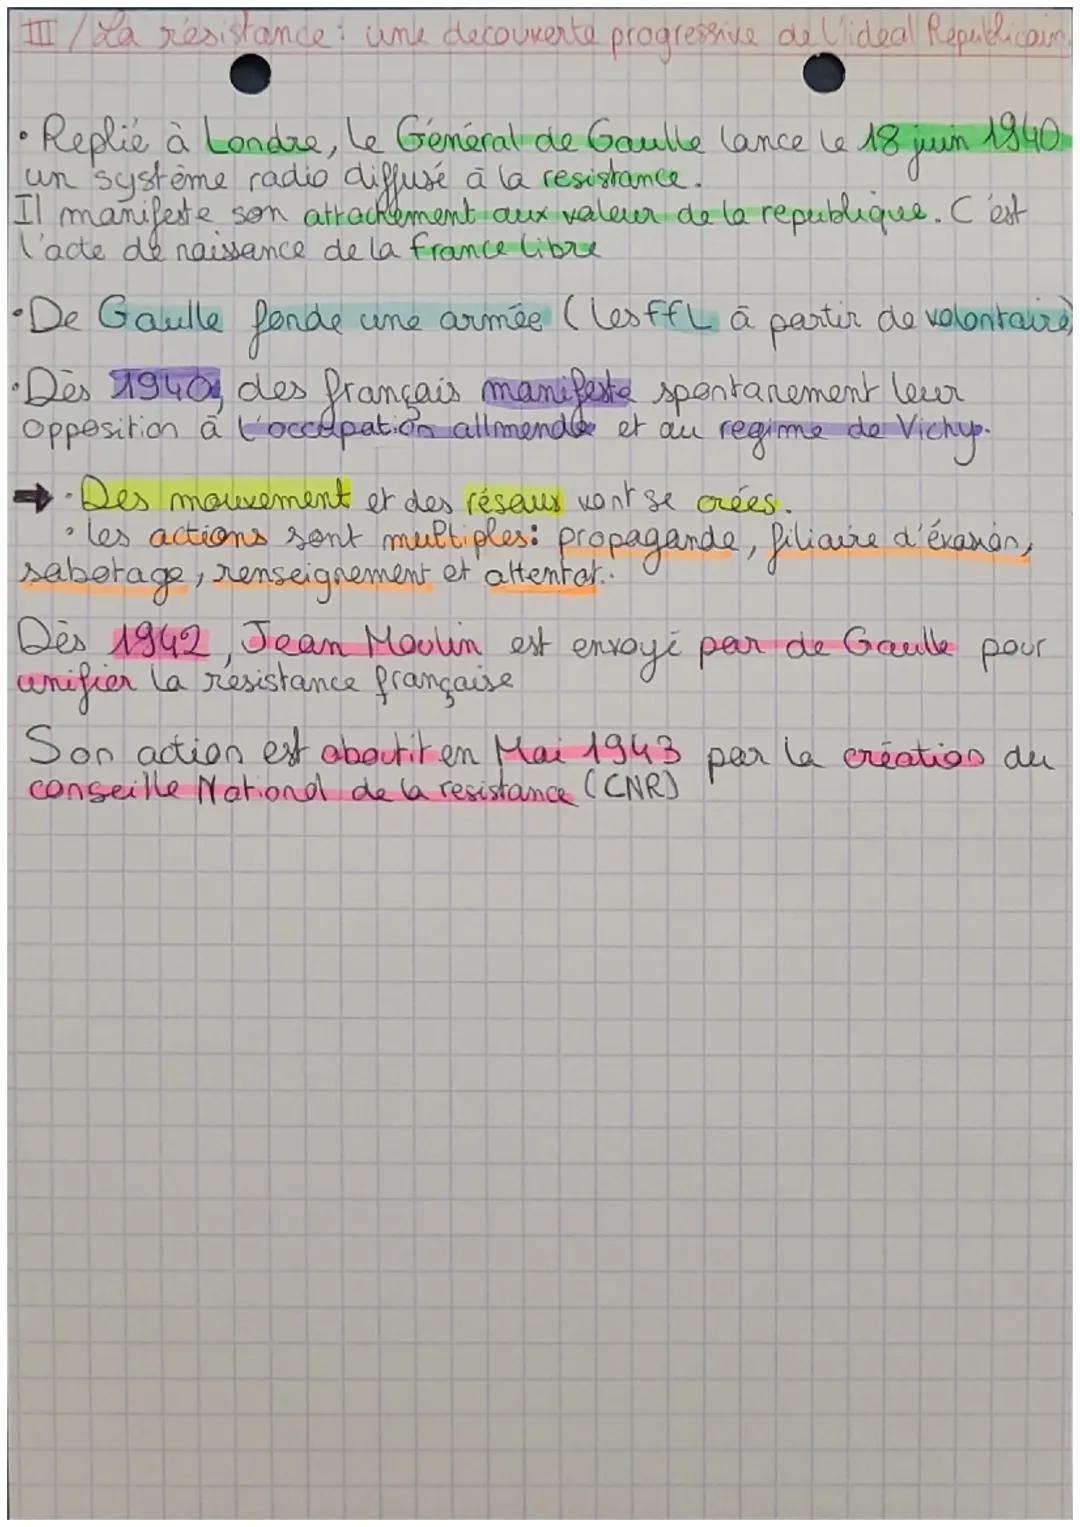 III / La résistance : une decouverte progressive de l'ideal Républicain.
• Replié à Londre, le Général de Gaulle lance le 18 juin 1940
un système radio diffusé à la resistance.
Il manifeste son attachement aux valeur de la republique. C'est
l'acte de naissance de la france libre
• De Gaulle fonde une armée (les ffL à partir de volontaire)
• Dès 1940, des français manifeste spontanement leur
opposition à l'occupation allmende et au regime de Vichy.
➡ • Des mouvement et des réseaux vont se crées.
• les actions sont multiples : propagande, filiaire d'évasion,
sabotage, renseignement et attentat..
Dès 1942, Jean Moulin est envoyé par de Gaulle pour
unifier la résistance française
Son action est aboutit en Mai 1943 par la création du
conseille National de la resistance (CNR)